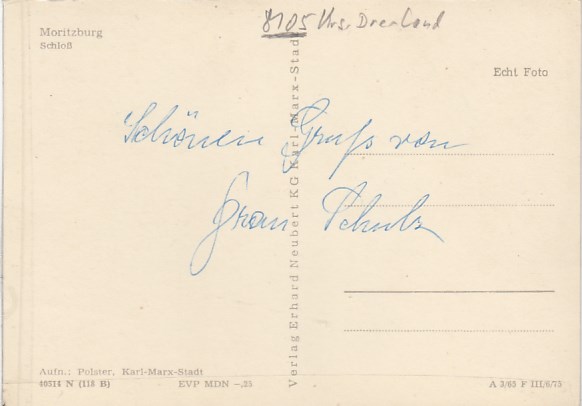 8105 Krs. Dresden Land
Moritzburg
Schloß
Echt Foto
Schönen Gruß von
Frau Schulz
Verlag Erhard Neubert KG Karl-Marx-Stadt
Aufn.: Polster, Karl-Marx-Stadt
40514 N (118 B) EVP MDN –,25 A 3/65 F III/6/75